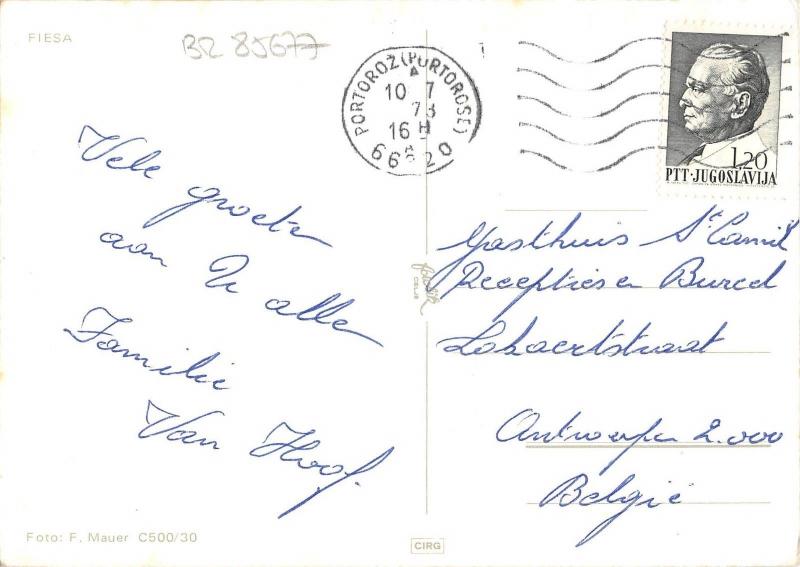 FIESA
BR 85677
PORTOROŽ (PORTOROSE)
10 7
73
16 H
66320
1,20
PTT·JUGOSLAVIJA
Vele groeten
aan U alle
Familie
Van Hoof.
Gasthuis St Camil
Recepties en Bureel
Lokaertstraat
Antwerpen 2.000
België
CELJE
Foto: F. Mauer C500/30
CIRG